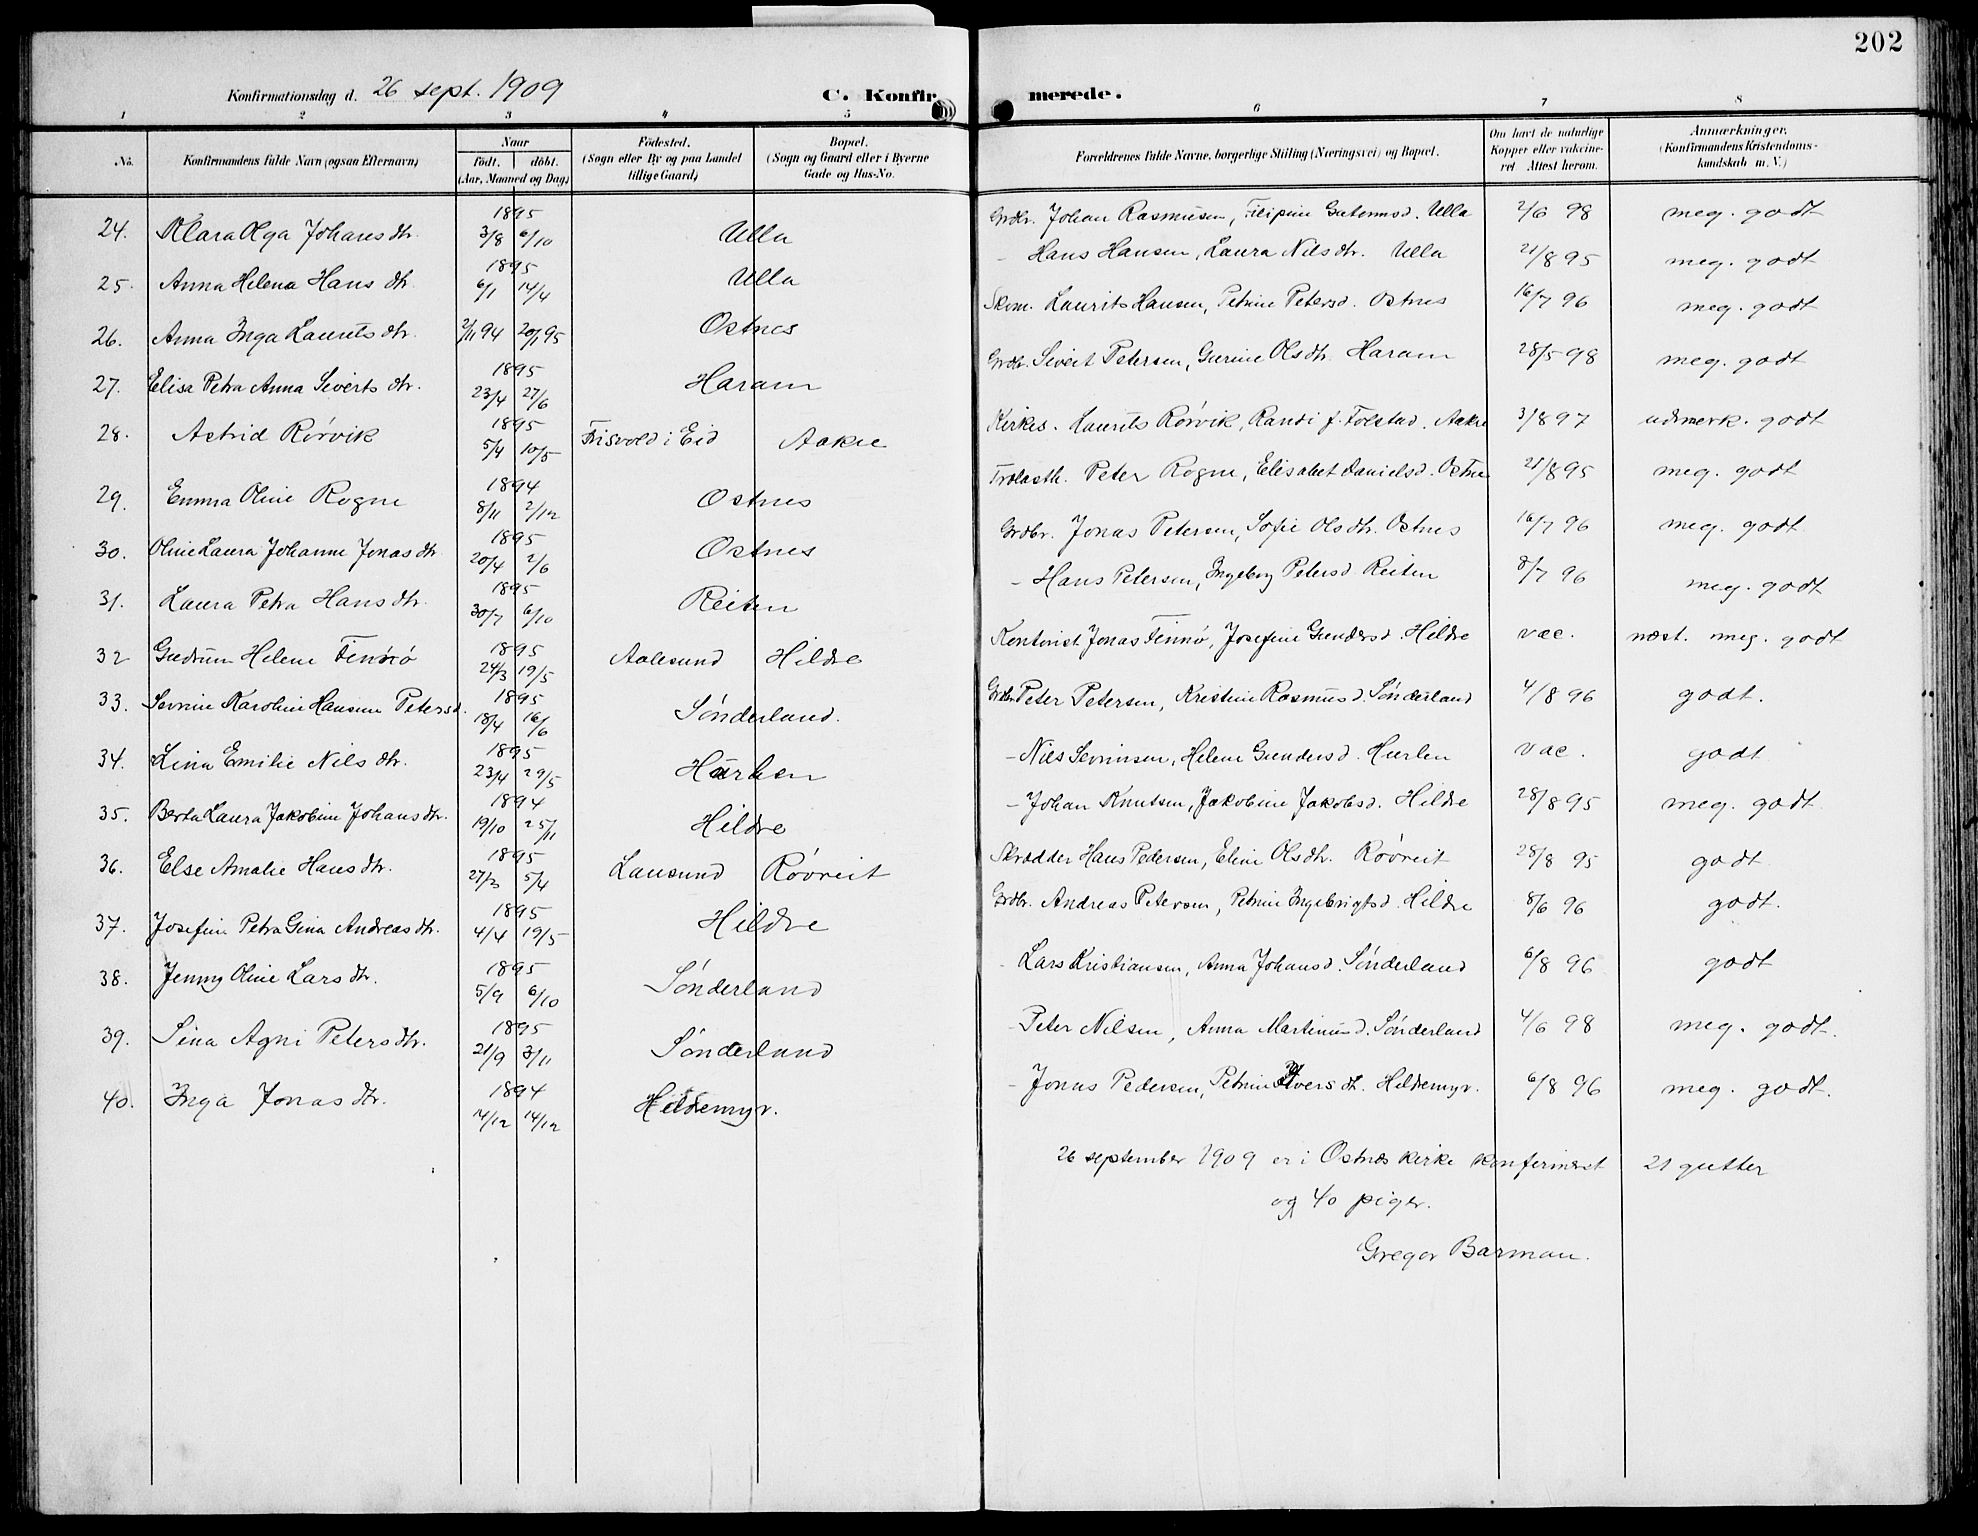 202
Konfirmationsdag d. 26 sept. 1909 C. Konfirmerede.
1 2 3 4 5 6 7 8
No. Konfirmandens fulde Navn (ogsaa Efternavn) Naar födt. döbt. (Aar, Maaned og Dag) Födested. (Sogn eller By og paa Landet tillige Gaard) Bopæl. (Sogn og Gaard eller i Byerne Gade og Hus-No. Forældrenes fulde Navne, borgerlige Stilling (Næringsvei) og Bopæl. Om havt de naturlige Kopper eller vakcineret Attest herom. Anmærkninger. (Konfirmandens Kristendomskundskab m. V.)
24. Klara Olga Johansdtr. 1895 3/8 6/10 Ulla Grdbr. Johan Rasmusen, Filipine Gutormsd. Ulla 2/6 98 meg. godt
25. Anna Helena Hansdtr. 1895 6/1 14/4 Ulla - Hans Hansen, Laura Nilsdtr. Ulla 21/8 95 meg. godt
26. Anna Inga Lauritsdtr. 2/11 94 20/1 95 Ostnes Skom. Laurits Hansen, Petrine Petersd. Ostnes 16/7 96 meg. godt
27. Elisa Petra Anna Sivertsdtr. 1895 23/4 27/6 Haram Grdbr. Sivert Petersen, Gurine Olsdtr. Haram 28/5 98 meg. godt
28. Astrid Rörvik 1895 5/4 10/5 Frisvold i Eid Aakre Kirkes. Laurits Rörvik, Randi f. Folstad. Aakre 3/8 97 udmerk. godt
29. Emma Oline Rogne 1894 8/11 2/12 Ostnes Peter Rogne, Elisabet Danielsd. Ostne 21/8 95 meg. godt
30. Oline Laura Johanne Jonasdtr 1895 20/4 2/6 Ostnes Grdbr. Jonas Petersen, Sofie Olsdtr. Ostnes 16/7 96 meg. godt
31. Laura Petra Hansdtr. 1895 30/7 6/10 Reiten - Hans Petersen, Ingeborg Petersd Reiten 8/7 96 meg. godt
32 Gudrun Helene Finnö 1895 24/3 19/5 Aalesund Hildre Kontorist Jonas Finnö, Josefine Gundersd. Hildre vac. næst. meg. godt
33. Sevrine Karoline Hansine Petersd. 1895 18/4 16/6 Sönderland. Grdbr. Peter Petersen, Kristine Rasmusd. Sönderland 4/8 96 godt.
34. Lina Emilie Nilsdtr. 1895 23/4 29/5 Hurlen - Nils Sevrinsen, Helene Gundersd. Hurlen vac. godt
35. Berta Laura Jakobine Johansdtr. 1894 19/10 25/11 Hildre - Johan Knutsen, Jakobine Jakobsd. Hildre 28/8 95 meg. godt
36. Else Amalie Hansdtr. 1895 27/3 5/4 Lausund Rövreit Skrædder Hans Pedersen, Eline Olsdtr. Rövreit 28/8 95 godt
37. Josefine Petra Gina Andreasdtr. 1895 4/4 19/5 Hildre Grdbr. Andreas Petersen, Petrine Ingebrigtsd. Hildre 8/6 96 godt.
38. Jenny Oline Larsdtr. 1895 5/9 6/10 Sönderland - Lars Kristiansen, Anna Johansd. Sönderland 6/8 96 godt
39. Sina Agni Petersdtr. 1895 21/9 3/11 Sönderland - Peter Nilsen, Anna Martinusd. Sönderland 4/6 98 meg. godt.
40. Inga Jonasdtr. 1894 4/12 14/12 Hildremyr. - Jonas Pedersen, Petrine Iversdt. Hildremyr. 6/8 96 meg. godt.
26 september 1909 er i Ostnes kirke konfirmert 21 gutter
og 40 piger.
Gregor Barman.